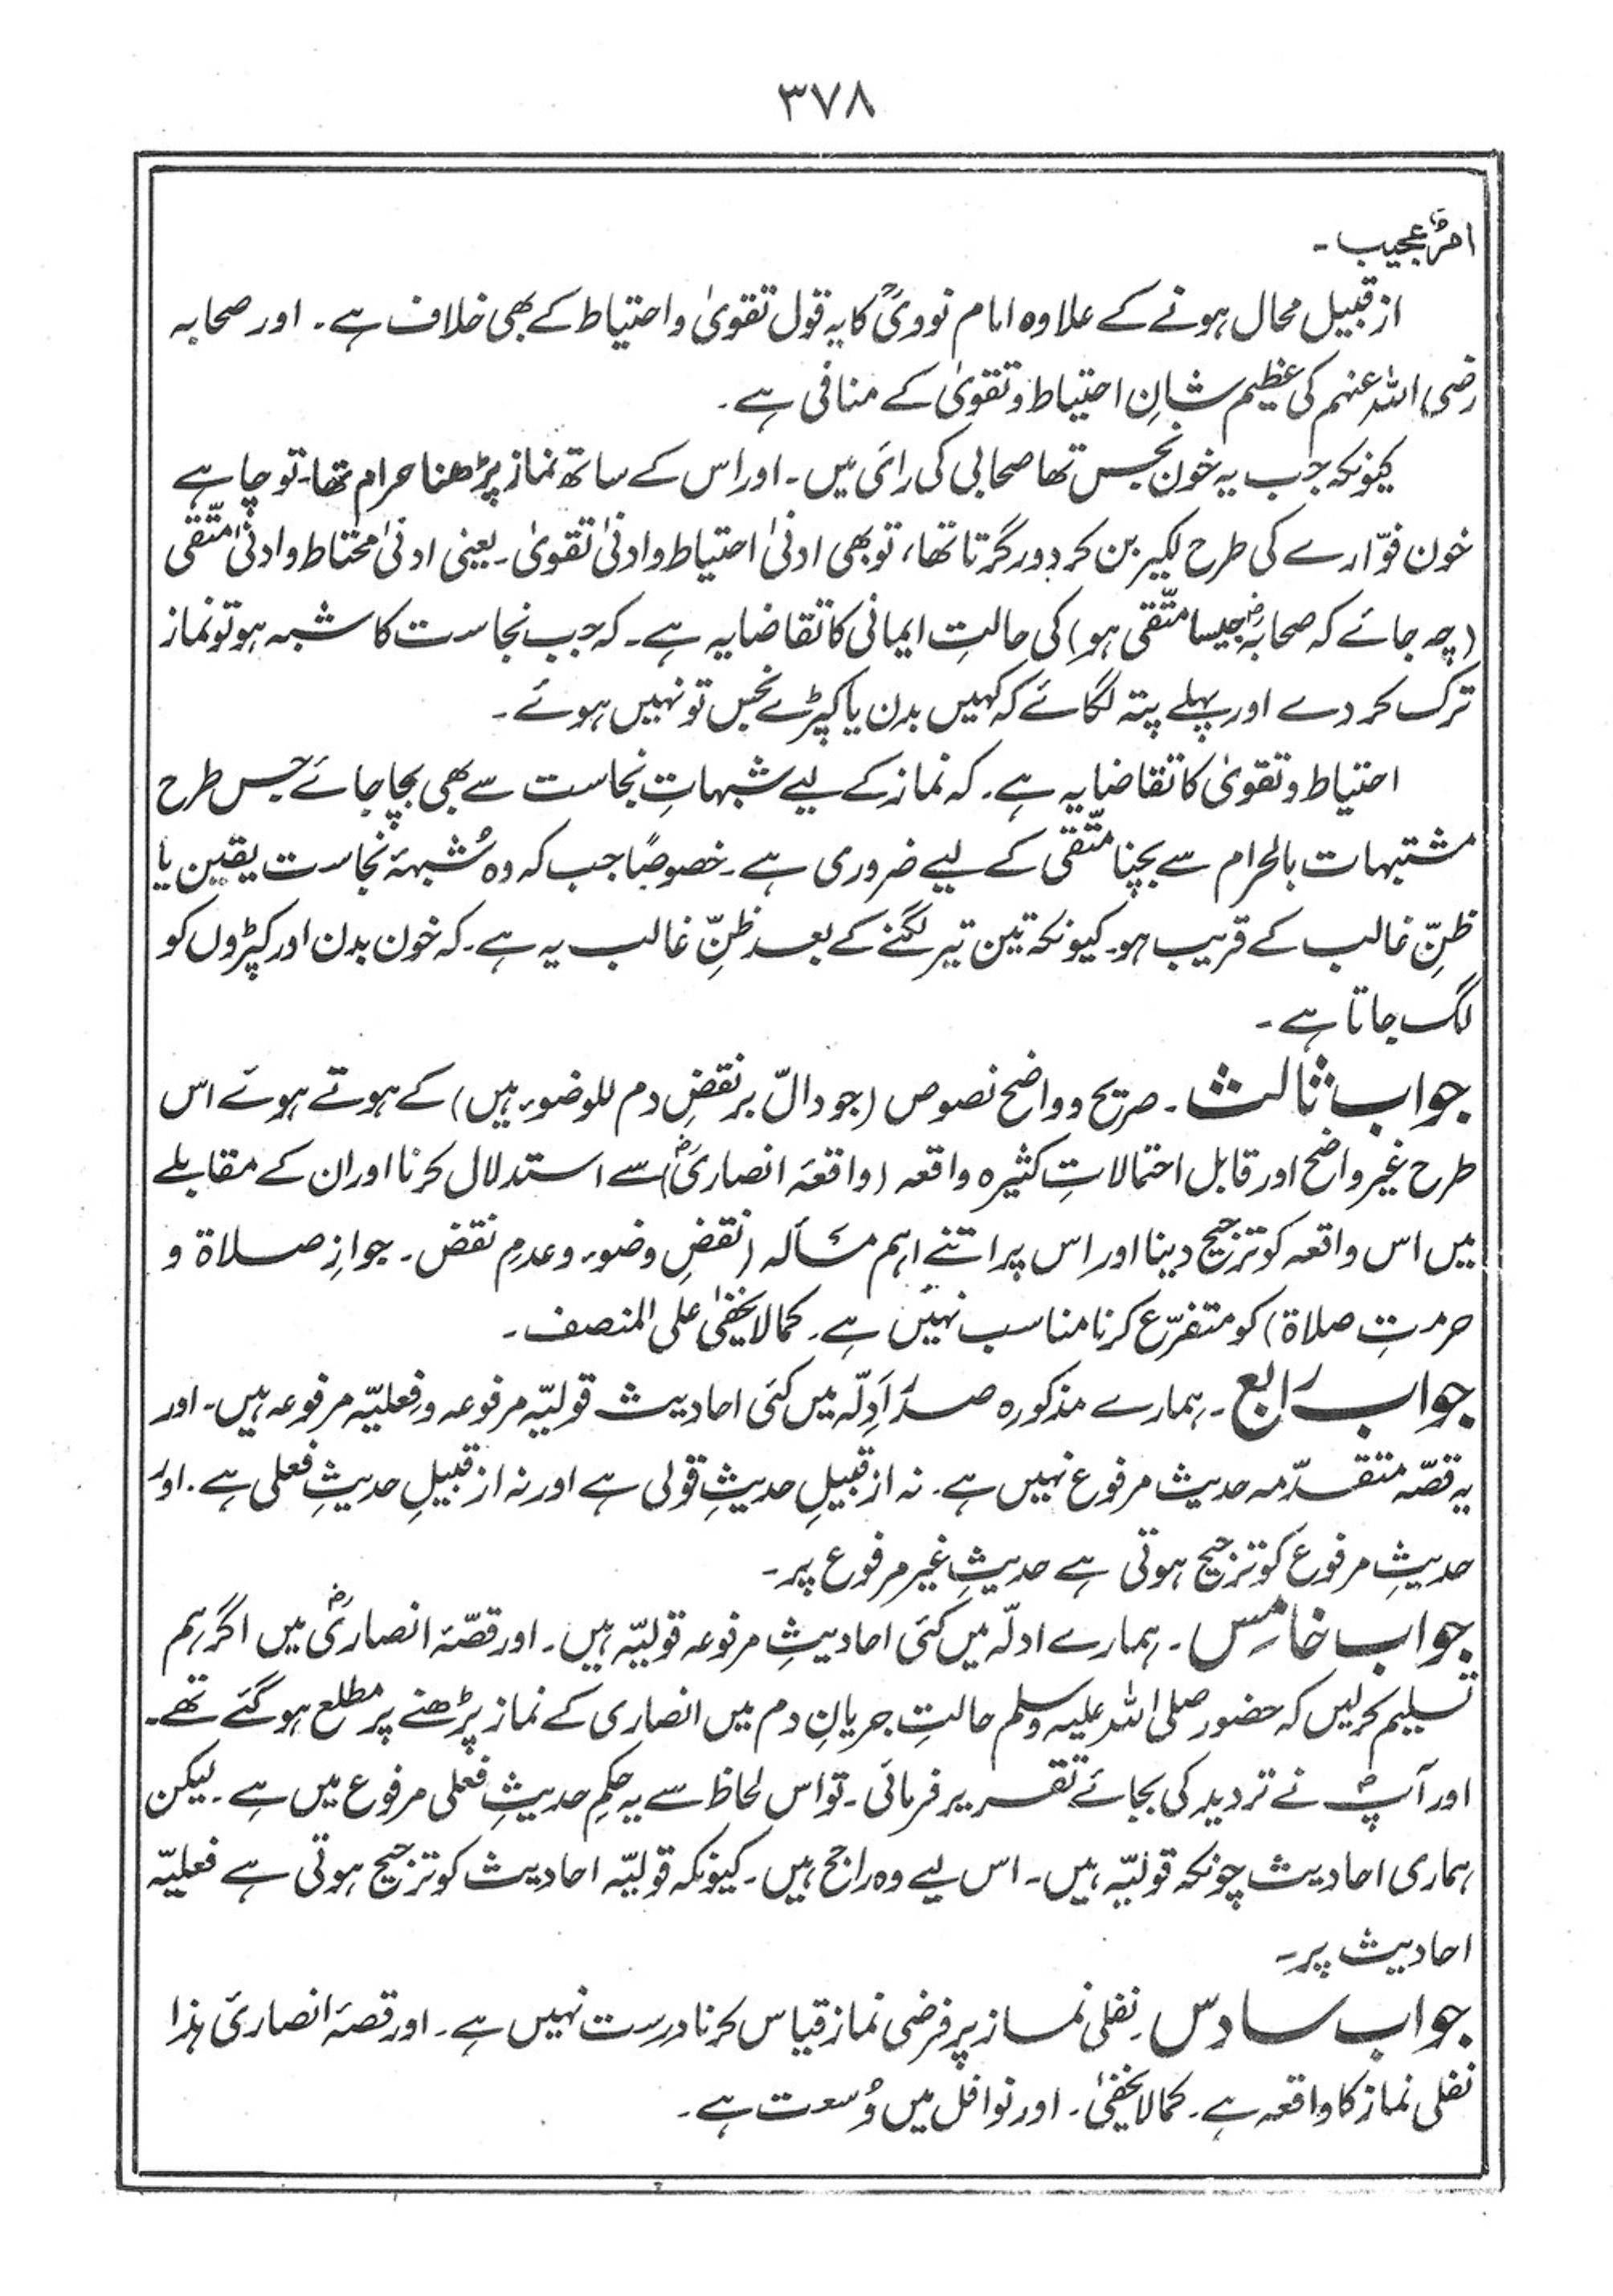 ۳۷۸
امرٌ عجیب ۔
از قبیل محال ہونے کے علاوہ امام نوویؒ کا یہ قول تقویٰ و احتیاط کے بھی خلاف ہے ۔ اور صحابہ
رضی اللہ عنہم کی عظیم شانِ احتیاط و تقویٰ کے منافی ہے ۔
کیونکہ جب یہ خون نجس تھا صحابی کی رائی میں ۔ اور اس کے ساتھ نماز پڑھنا حرام تھا۔ تو چاہے
خون فوّارے کی طرح لکیر بن کر دور گرتا تھا، تو بھی ادنیٰ احتیاط و ادنیٰ تقویٰ ۔ یعنی ادنیٰ محتاط و ادنیٰ متّقی
(چہ جائے کہ صحابہؓ جیسا متّقی ہو) کی حالتِ ایمانی کا تقاضا یہ ہے ۔ کہ جب نجاست کا شبہ ہو تو نماز
ترک کر دے اور پہلے پتہ لگائے کہ کہیں بدن یا کپڑے نجس تو نہیں ہوئے ۔
احتیاط و تقویٰ کا تقاضا یہ ہے ۔ کہ نماز کے لیے شبہاتِ نجاست سے بھی بچا جائے جس طرح
مشتبہات بالحرام سے بچنا متّقی کے لیے ضروری ہے ۔ خصوصًا جب کہ وہ شُبہۂ نجاست یقین یا
ظنِّ غالب کے قریب ہو۔ کیونکہ تین تیر لگنے کے بعد ظنِّ غالب یہ ہے ۔ کہ خون بدن اور کپڑوں کو
لگ جاتا ہے ۔
جواب ثالث ۔ صریح و واضح نصوص (جو دالّ بر نقضِ دم للوضوء ہیں) کے ہوتے ہوئے اس
طرح غیر واضح اور قابل احتمالاتِ کثیرہ واقعہ (واقعۂ انصاریؓ) سے استدلال کرنا اور ان کے مقابلے
میں اس واقعہ کو ترجیح دینا اور اس پر اتنے اہم مسألہ (نقضِ وضوء و عدمِ نقض ۔ جوازِ صلاۃ و
حرمتِ صلاۃ) کو متفرّع کرنا مناسب نہیں ہے ۔ کما لا یخفیٰ علی المنصف ۔
جواب رابع ۔ ہمارے مذکورہ صدر اَدِلّہ میں کئی احادیث قولیّہ مرفوعہ و فعلیّہ مرفوعہ ہیں ۔ اور
یہ قصّہ متقدّمہ حدیث مرفوع نہیں ہے ۔ نہ از قبیلِ حدیثِ قولی ہے اور نہ از قبیلِ حدیثِ فعلی ہے ۔ اور
حدیثِ مرفوع کو ترجیح ہوتی ہے حدیثِ غیر مرفوع پر ۔
جواب خامس ۔ ہمارے ادلّہ میں کئی احادیثِ مرفوعہ قولیّہ ہیں ۔ اور قصّۂ انصاریؓ میں اگر ہم
تسلیم کرلیں کہ حضور صلی اللہ علیہ وسلم حالتِ جریانِ دم میں انصاری کے نماز پڑھنے پر مطلع ہو گئے تھے ۔
اور آپؐ نے تردید کی بجائے تقریر فرمائی ۔ تو اس لحاظ سے یہ حکمِ حدیثِ فعلی مرفوع میں ہے ۔ لیکن
ہماری احادیث چونکہ قولیّہ ہیں ۔ اس لیے وہ راجح ہیں ۔ کیونکہ قولیّہ احادیث کو ترجیح ہوتی ہے فعلیّہ
احادیث پر ۔
جواب سادس ۔ نفلی نماز پر فرضی نماز قیاس کرنا درست نہیں ہے ۔ اور قصۂ انصاریؓ ہذا
نفلی نماز کا واقعہ ہے ۔ کما لا یخفیٰ ۔ اور نوافل میں وُسعت ہے ۔